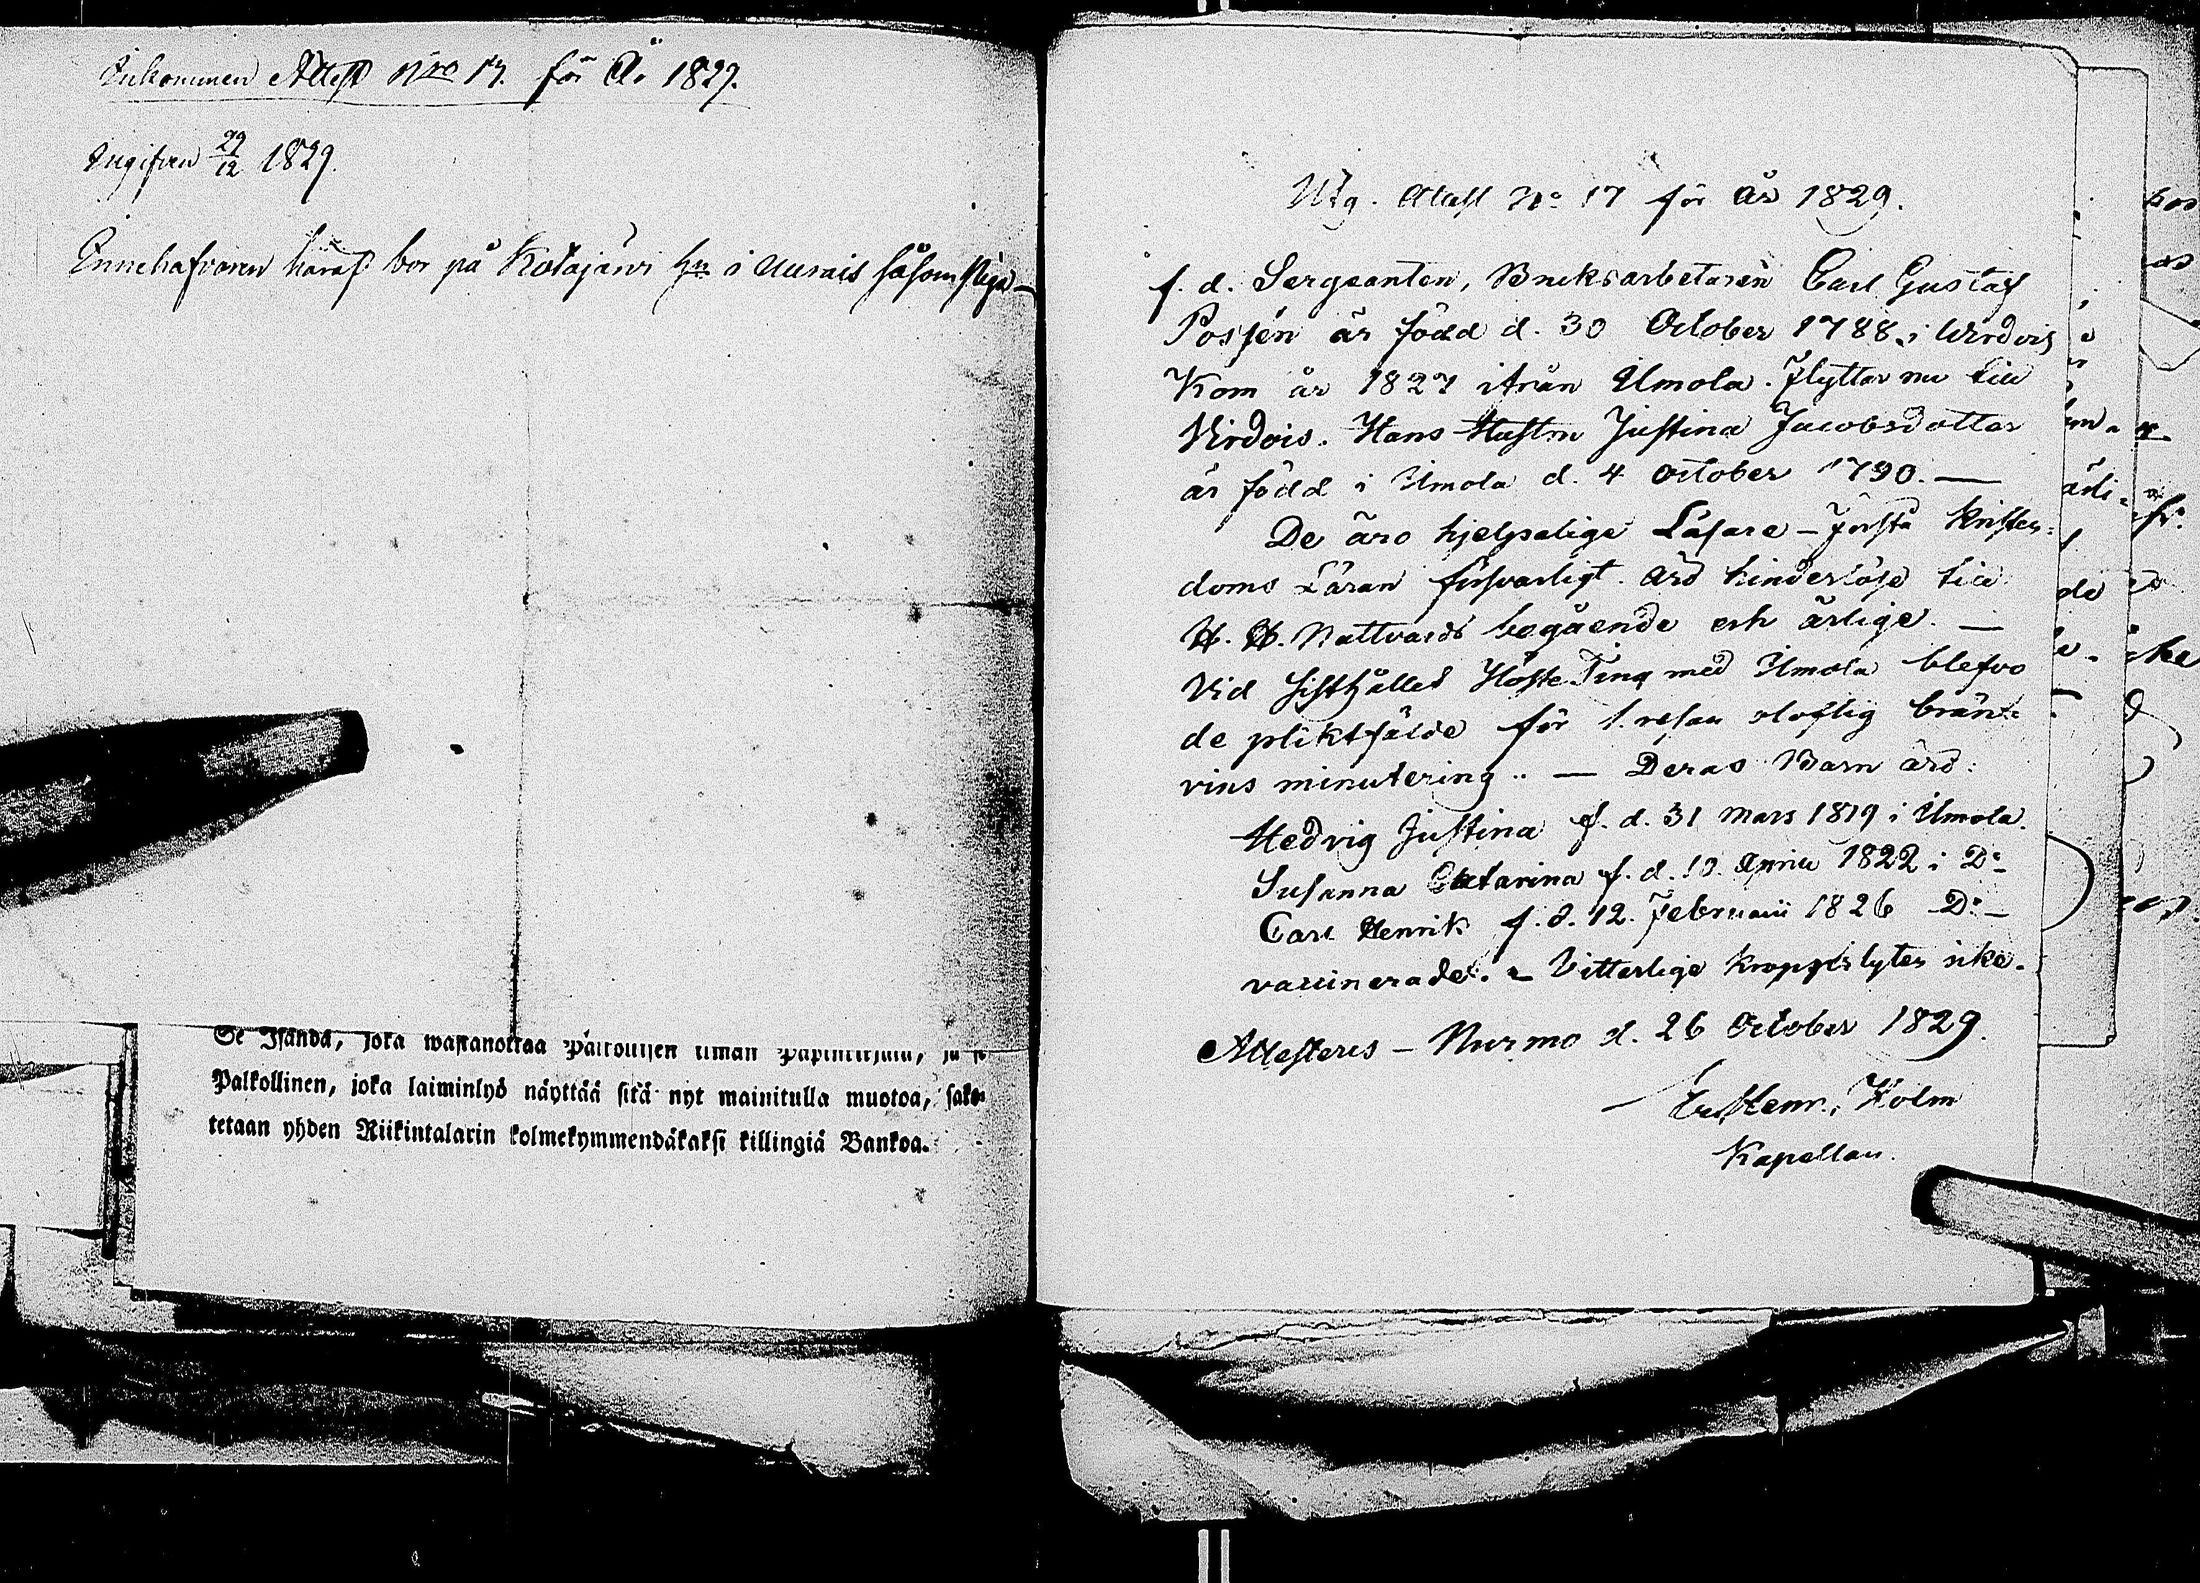 Inkommen Attest Nro 17. för År 1829.
Ingifven 29/12 1829.
Innehafvaren häraf bor på Kotajärvi hn i Aurais såsom Piga
Se Isändä, joka wastanottaa Palkollisen ilman Papinkirjata, ja se
Palkollinen, joka laiminlyö näyttää sitä nyt mainitulla muotoa, sako-
tetaan yhden Riikintalarin kolmekymmendäkaksi killingiä Bankoa.
Utg. Attest No 17 för år 1829.
f. d. Sergeanten, Bruksarbetaren Carl Gustaf
Possén är född d. 30 October 1788 i Wirdois
Kom år 1827 ifrån Ilmola. Flyttar nu till
Virdois. Hans Hustru Justina Jacobsdotter
är född i Ilmola d. 4 October 1790. —
De äro hjelpelige Läsare – Förstå kristen-
doms Läran försvarligt. äro hinderlöse till
H. H. Nattvards begående och ärlige. —
Vid sisthållet Höste Ting med Ilmola blefvo
de pliktfälde för 1. resan oloflig brän-
vins minutering. — Deras Barn äro:
Hedvig Justina f. d. 31 Mars 1819 i Ilmola.
Susanna Catarina f. d. 10. April 1822 i Do
Carl Henrik f. d. 12. Februarii 1826 Do –
vaccinerade. – Vitterlige kroppslyter icke.
Attesteres – Nurmo d. 26 October 1829.
Henr. Holm
Kapellan.